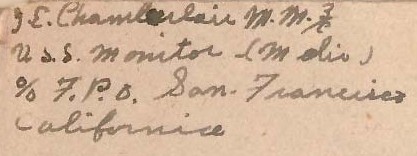 J E. Chamberlair M.M. 3/c
U.S.S. Monitor (M div)
% F.P.O. San-Francisco
California